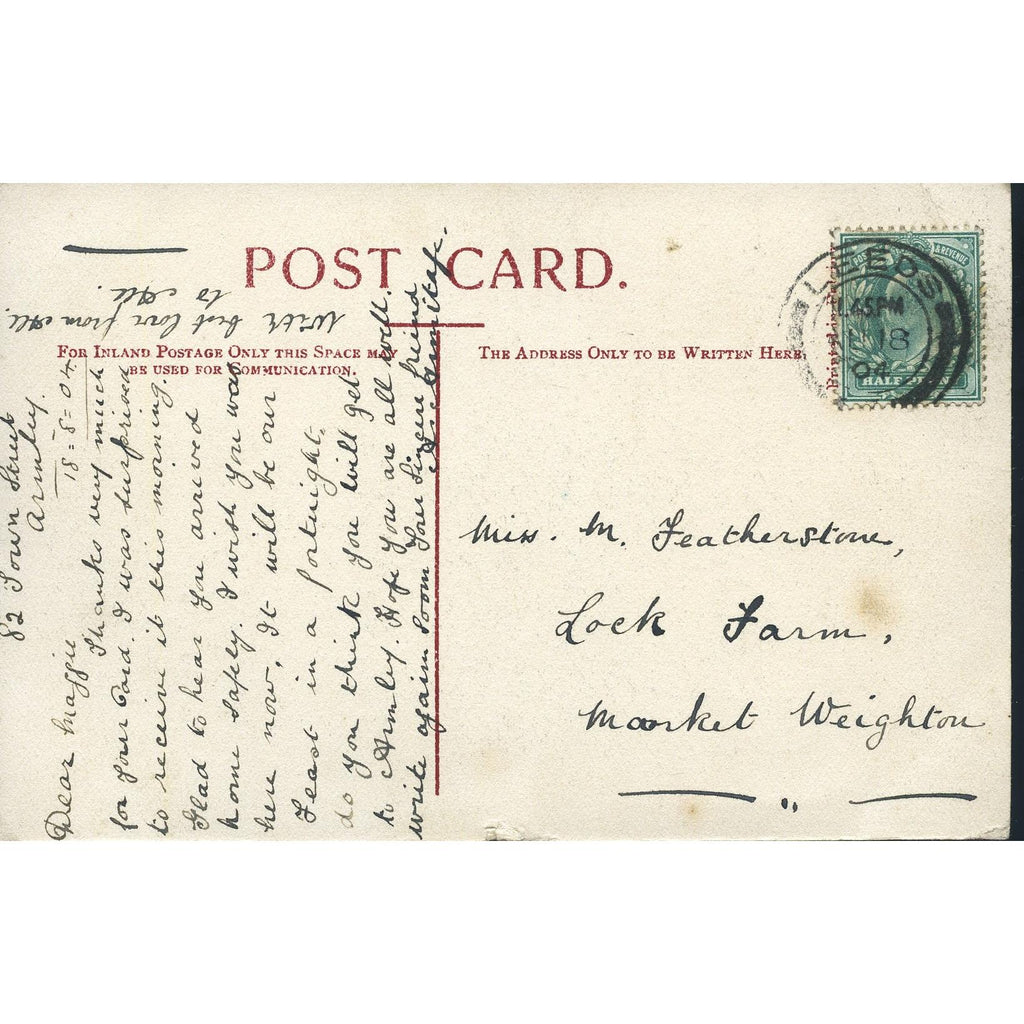 POST CARD.
FOR INLAND POSTAGE ONLY THIS SPACE MAY
BE USED FOR COMMUNICATION.
THE ADDRESS ONLY TO BE WRITTEN HERE.
LEEDS
45PM
18
04
& REVENUE
HALF
82 Town Street
Armley.
18=8=04
Dear Maggie
Thanks very much
for your Card. I was surprised
to receive it this morning.
Glad to hear you arrived
home safely. I wish you was
here now, It will be our
Feast in a fortnight,
do you think you will get
to Armley. Hope you are all well.
write again soon Your Sincere friend
With best love from All.
to All.
Miss. M. Featherstone,
Lock Farm,
Market Weighton